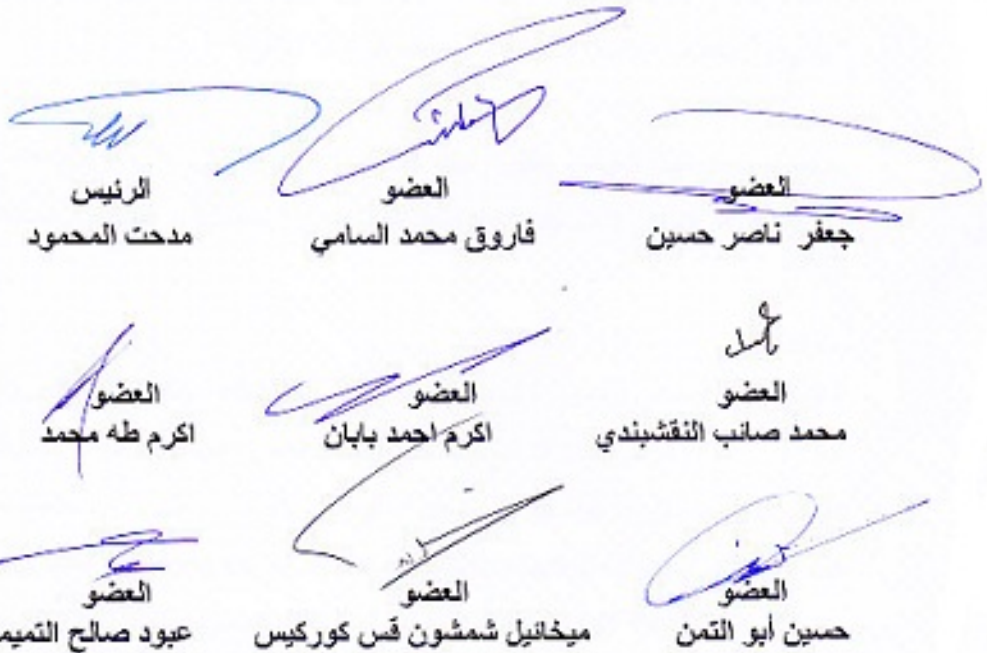 الرئيس
مدحت المحمود
العضو
فاروق محمد السامي
العضو
جعفر ناصر حسين
العضو
اكرم طه محمد
العضو
اكرم احمد بابان
العضو
محمد صائب النقشبندي
العضو
عبود صالح التميم
العضو
ميخائيل شمشون قس كوركيس
العضو
حسين أبو التمن